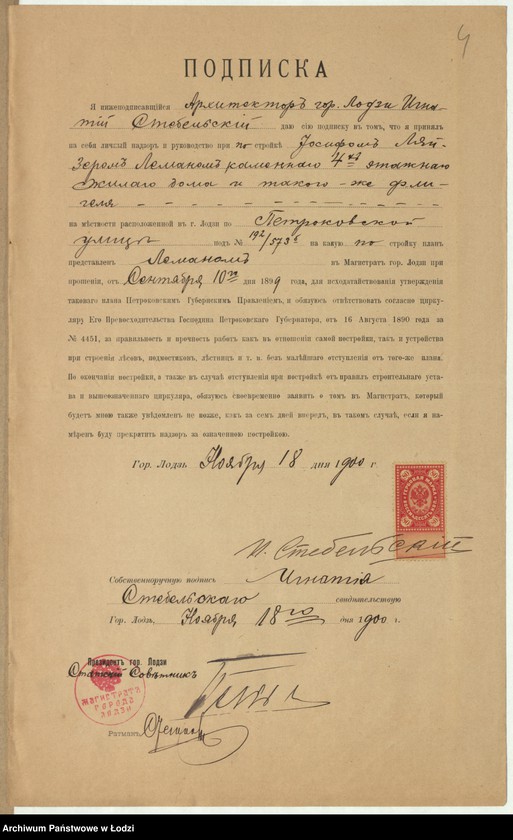 4
ПОДПИСКА
Я нижеподписавшійся Архитекторъ гор. Лодзи Игна-
тій Стебельскій даю сію подписку въ томъ, что я принялъ
на себя личный надзоръ и руководство при по стройкѣ Іосифомъ Ляй-
зеромъ Леманомъ каменнаго 4хъ этажнаго
жилаго дома и такого-же фли-
геля
на мѣстности расположенной въ г. Лодзи по Петроковской
улицы подъ № 192/573б на какую по стройку планъ
представленъ Леманомъ въ Магистратъ гор. Лодзи при
прошеніи, отъ Сентября 10го дня 1899 года, для исходатайствованія утвержденія
таковаго плана Петроковскимъ Губернскимъ Правленіемъ, и обязуюсь отвѣтствовать согласно цирку-
ляру Его Превосходительства Господина Петроковскаго Губернатора, отъ 16 Августа 1890 года за
№ 4451, за правильность и прочность работъ какъ въ отношеніи самой постройки, такъ и устройства
при строеніи лѣсовъ, подмостковъ, лѣстницъ и т. п. безъ малѣйшаго отступленія отъ того-же плана.
По окончаніи постройки, а также въ случаѣ отступленія при постройкѣ отъ правилъ строительнаго уста-
ва и вышеозначеннаго циркуляра, обязуюсь своевременно заявить о томъ въ Магистратъ, который
будетъ мною также увѣдомленъ не позже, какъ за семь дней впередъ, въ такомъ случаѣ, если я на-
мѣренъ буду прекратить надзоръ за означенною постройкою.
Гор. Лодзь, Ноября 18 дня 1900 г.
И. Стебельскій
Собственноручную подпись Игнатія
Стебельскаго свидѣтельствую
Гор. Лодзь, Ноября 18го дня 1900 г.
Президентъ гор. Лодзи
Статскій Совѣтникъ
МАГИСТРАТА
ГОРОДА
ЛОДЗИ
Ратманъ,
Archiwum Państwowe w Łodzi